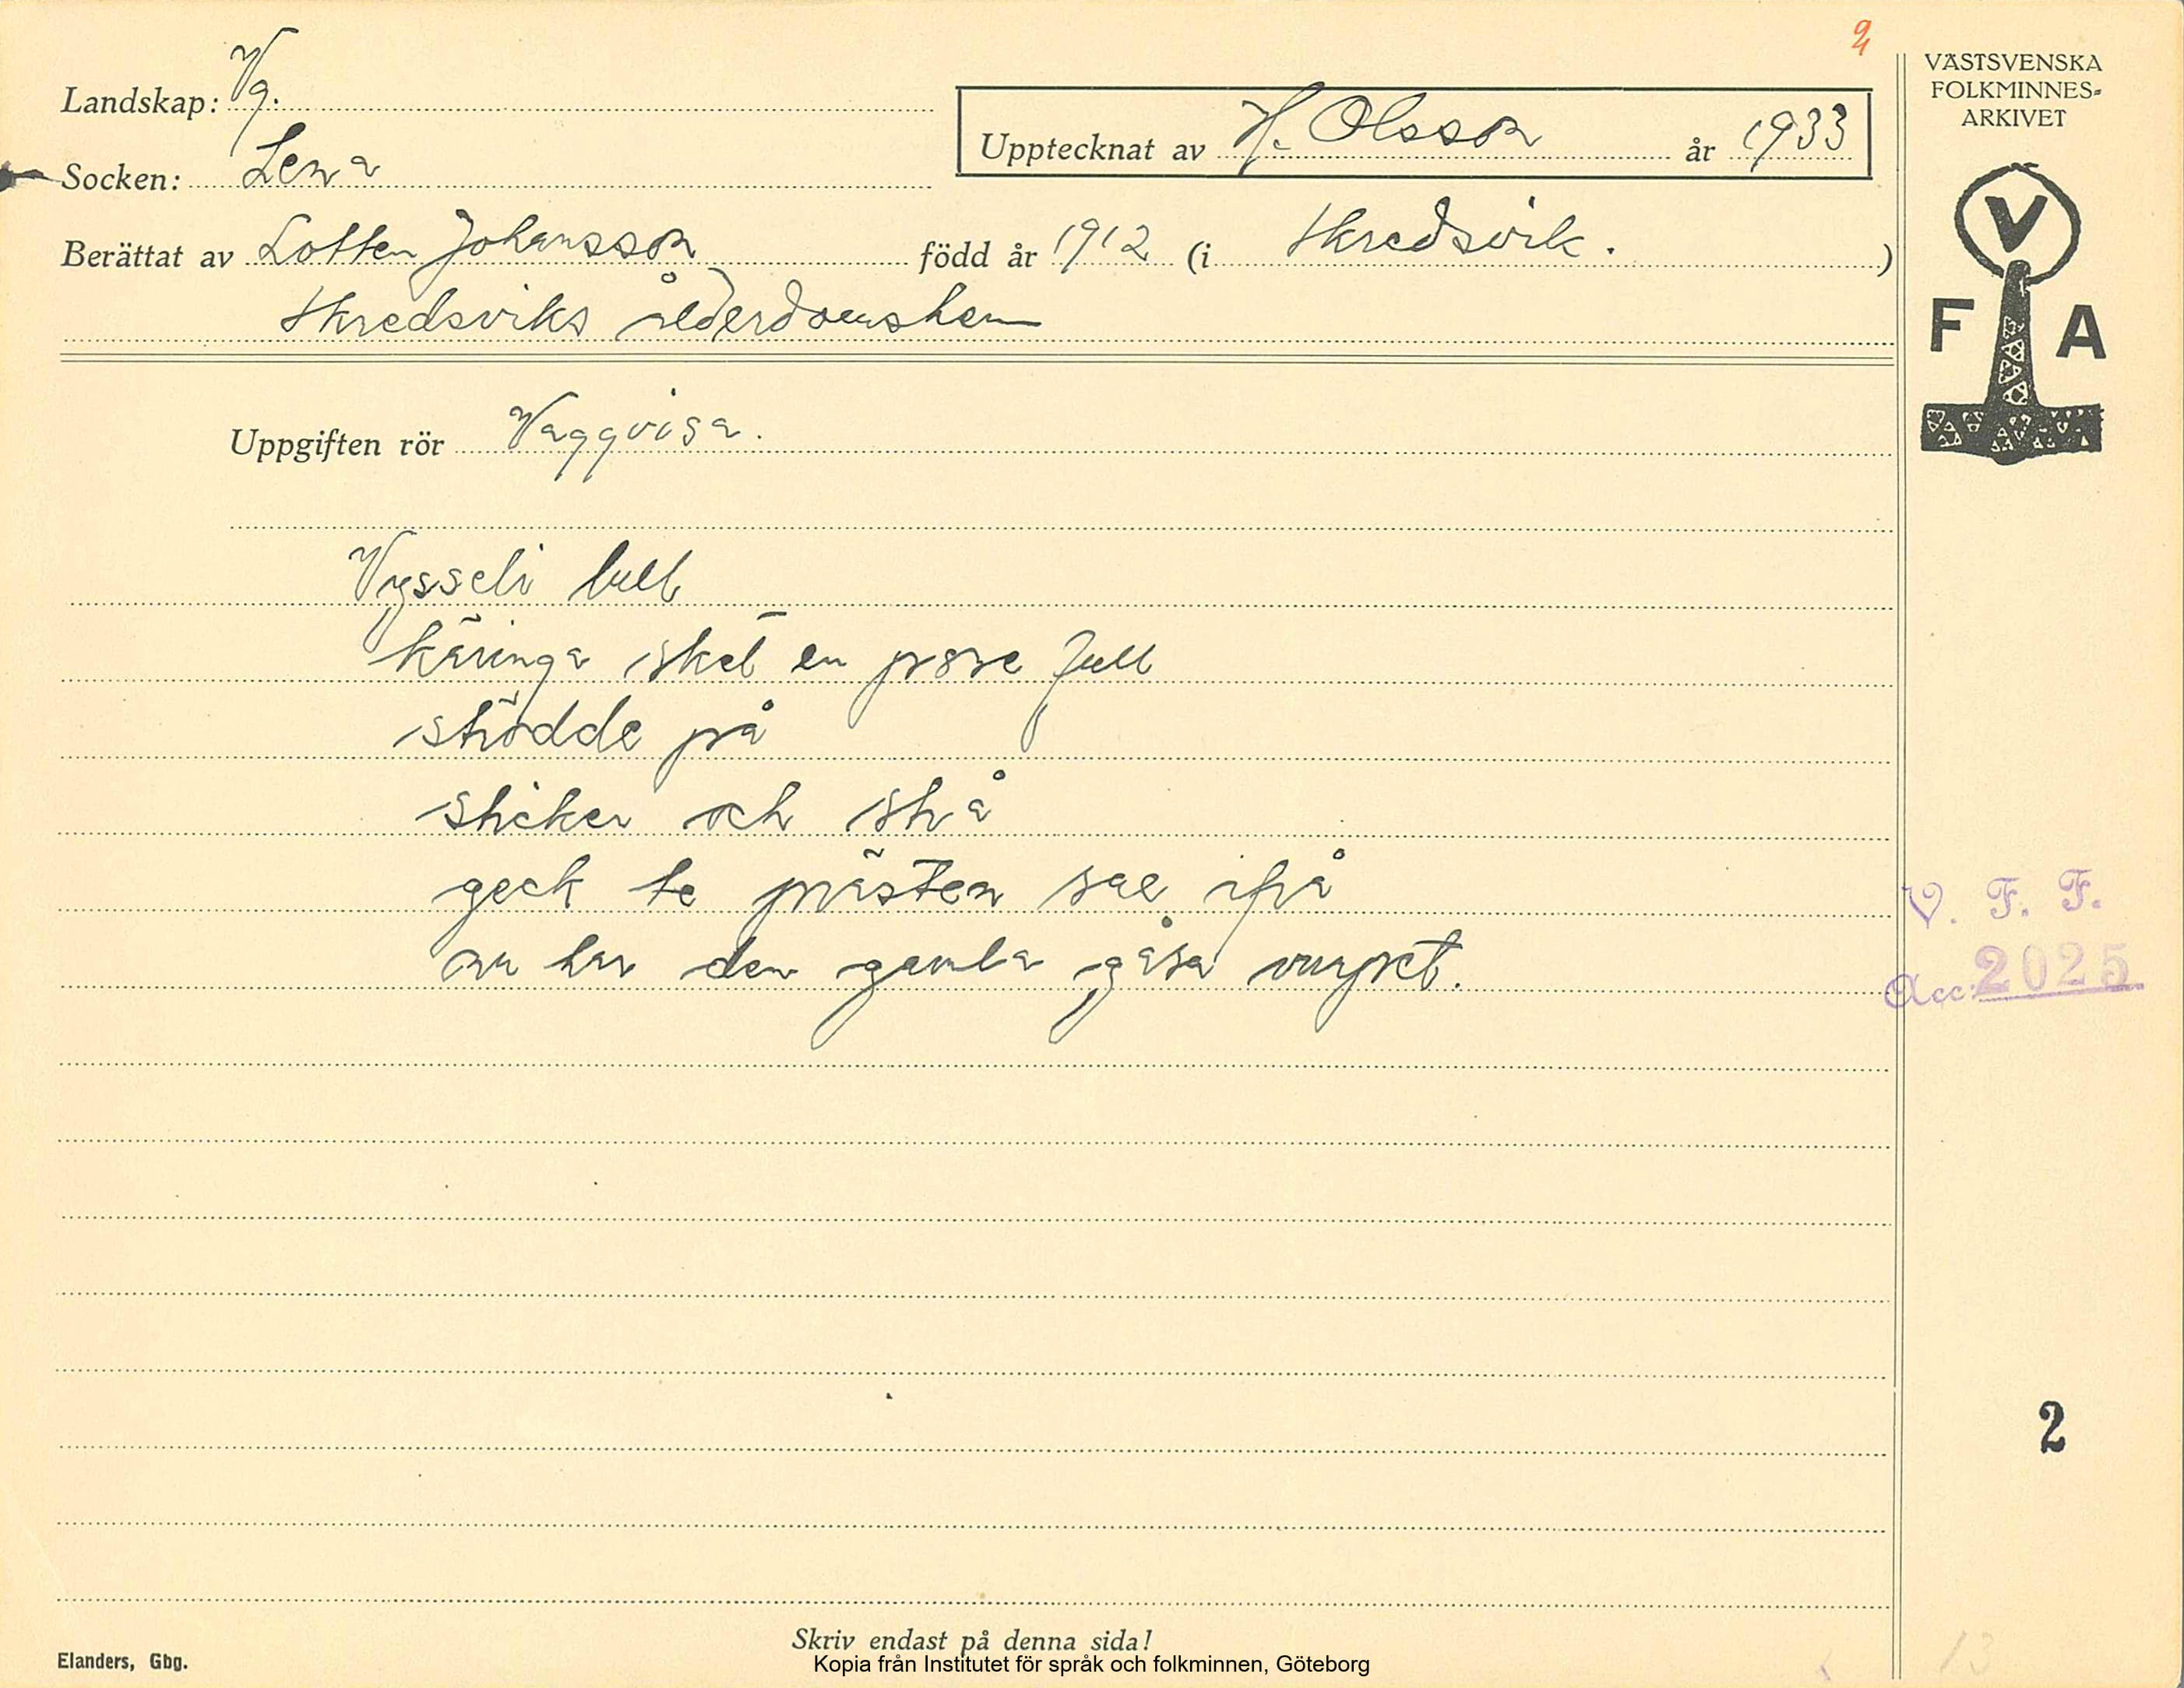 2
Landskap: Vg.
Socken: Lena
Upptecknat av H. Olsson år 1933
Berättat av Lotten Johansson född år 1912 (i Skredsvik.)
Skredsviks ålderdomshem
VÄSTSVENSKA
FOLKMINNES-
ARKIVET
V
F A
Uppgiften rör Vaggvisa.
Vysseli lull
käringa sket en påse full
strödde på
sticker och strå
geck te prästen sae ifrå
nu har den gamla gåsa vurpet.
V. F. F.
Acc. 2025
2
Skriv endast på denna sida!
Elanders, Gbg.
Kopia från Institutet för språk och folkminnen, Göteborg
13